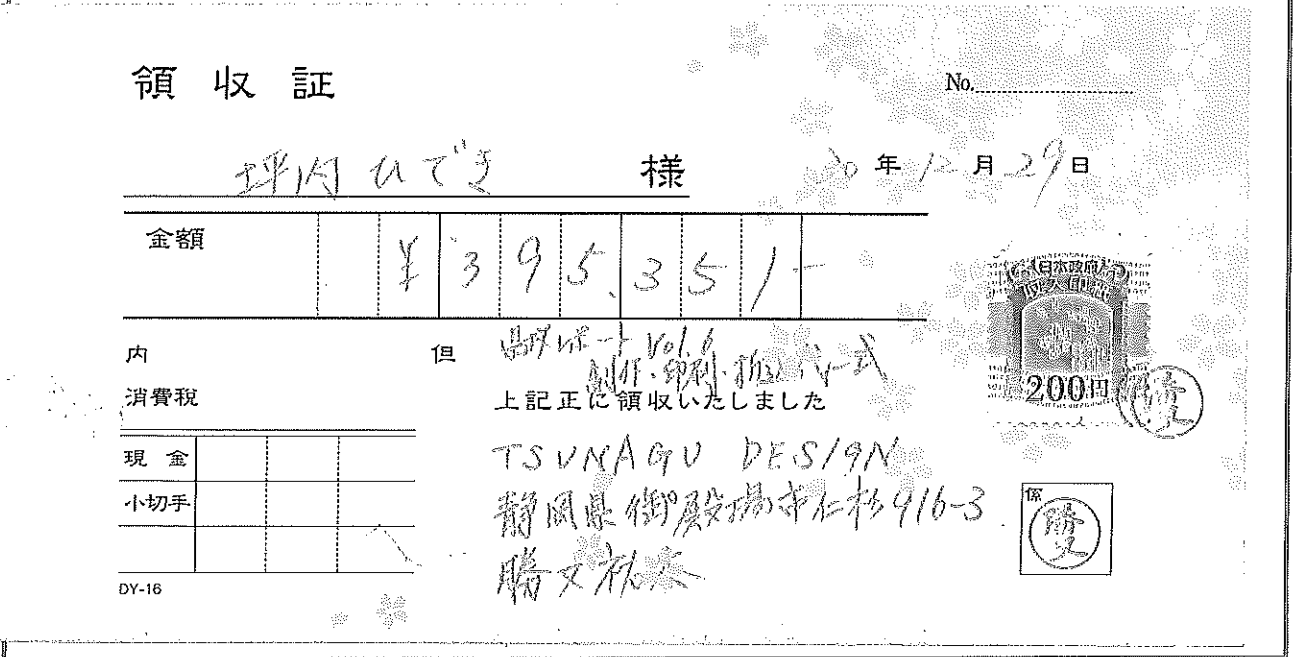 領収証
No.
坪内ひでき 様
30年12月29日
金額 ¥395,351-
内
但 県政レポート Vol.6
制作・印刷・折込代一式
消費税
上記正に領収いたしました
日本政府
収入印紙
200円
現金
小切手
TSUNAGU DESIGN
静岡県御殿場市仁杉916-3
勝又祐太
係
勝又
DY-16